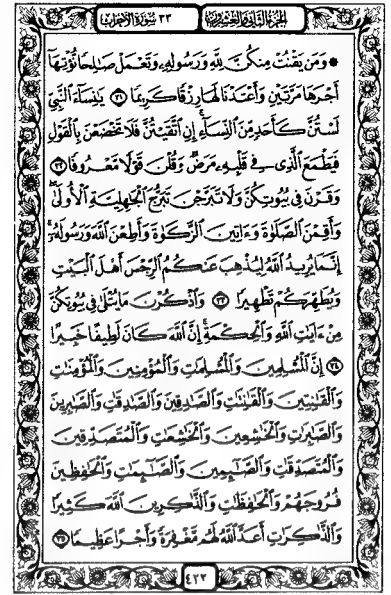 الجزء الثاني والعشرون ٣٣ سورة الأحزاب
* وَمَن يَقْنُتْ مِنكُنَّ لِلَّهِ وَرَسُولِهِۦ وَتَعْمَلْ صَٰلِحًا نُّؤْتِهَآ
أَجْرَهَا مَرَّتَيْنِ وَأَعْتَدْنَا لَهَا رِزْقًا كَرِيمًا ٣١ يَٰنِسَآءَ ٱلنَّبِيِّ
لَسْتُنَّ كَأَحَدٍ مِّنَ ٱلنِّسَآءِ إِنِ ٱتَّقَيْتُنَّ فَلَا تَخْضَعْنَ بِٱلْقَوْلِ
فَيَطْمَعَ ٱلَّذِى فِى قَلْبِهِۦ مَرَضٌ وَقُلْنَ قَوْلًا مَّعْرُوفًا ٣٢
وَقَرْنَ فِى بُيُوتِكُنَّ وَلَا تَبَرَّجْنَ تَبَرُّجَ ٱلْجَٰهِلِيَّةِ ٱلْأُولَىٰ
وَأَقِمْنَ ٱلصَّلَوٰةَ وَءَاتِينَ ٱلزَّكَوٰةَ وَأَطِعْنَ ٱللَّهَ وَرَسُولَهُۥٓ
إِنَّمَا يُرِيدُ ٱللَّهُ لِيُذْهِبَ عَنكُمُ ٱلرِّجْسَ أَهْلَ ٱلْبَيْتِ
وَيُطَهِّرَكُمْ تَطْهِيرًا ٣٣ وَٱذْكُرْنَ مَا يُتْلَىٰ فِى بُيُوتِكُنَّ
مِنْ ءَايَٰتِ ٱللَّهِ وَٱلْحِكْمَةِ إِنَّ ٱللَّهَ كَانَ لَطِيفًا خَبِيرًا
٣٤ إِنَّ ٱلْمُسْلِمِينَ وَٱلْمُسْلِمَٰتِ وَٱلْمُؤْمِنِينَ وَٱلْمُؤْمِنَٰتِ
وَٱلْقَٰنِتِينَ وَٱلْقَٰنِتَٰتِ وَٱلصَّٰدِقِينَ وَٱلصَّٰدِقَٰتِ وَٱلصَّٰبِرِينَ
وَٱلصَّٰبِرَٰتِ وَٱلْخَٰشِعِينَ وَٱلْخَٰشِعَٰتِ وَٱلْمُتَصَدِّقِينَ
وَٱلْمُتَصَدِّقَٰتِ وَٱلصَّٰٓئِمِينَ وَٱلصَّٰٓئِمَٰتِ وَٱلْحَٰفِظِينَ
فُرُوجَهُمْ وَٱلْحَٰفِظَٰتِ وَٱلذَّٰكِرِينَ ٱللَّهَ كَثِيرًا
وَٱلذَّٰكِرَٰتِ أَعَدَّ ٱللَّهُ لَهُم مَّغْفِرَةً وَأَجْرًا عَظِيمًا ٣٥
٤٢٢